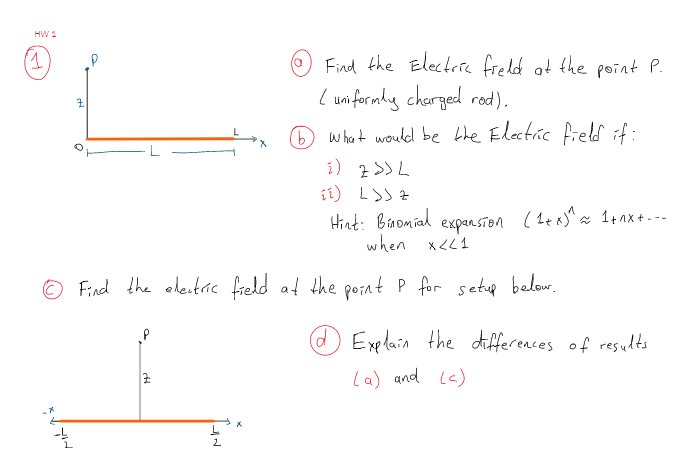 HW 1
1
P
z
O
L
x
L
a Find the Electric field at the point P.
(uniformly charged rod).
b What would be the Electric field if:
i) z >> L
ii) L >> z
Hint: Binomial expansion (1+x)^n ≈ 1+nx+---
when x<<1
c Find the electric field at the point P for setup below.
P
z
-x
x
-L/2
L/2
d Explain the differences of results
(a) and (c)